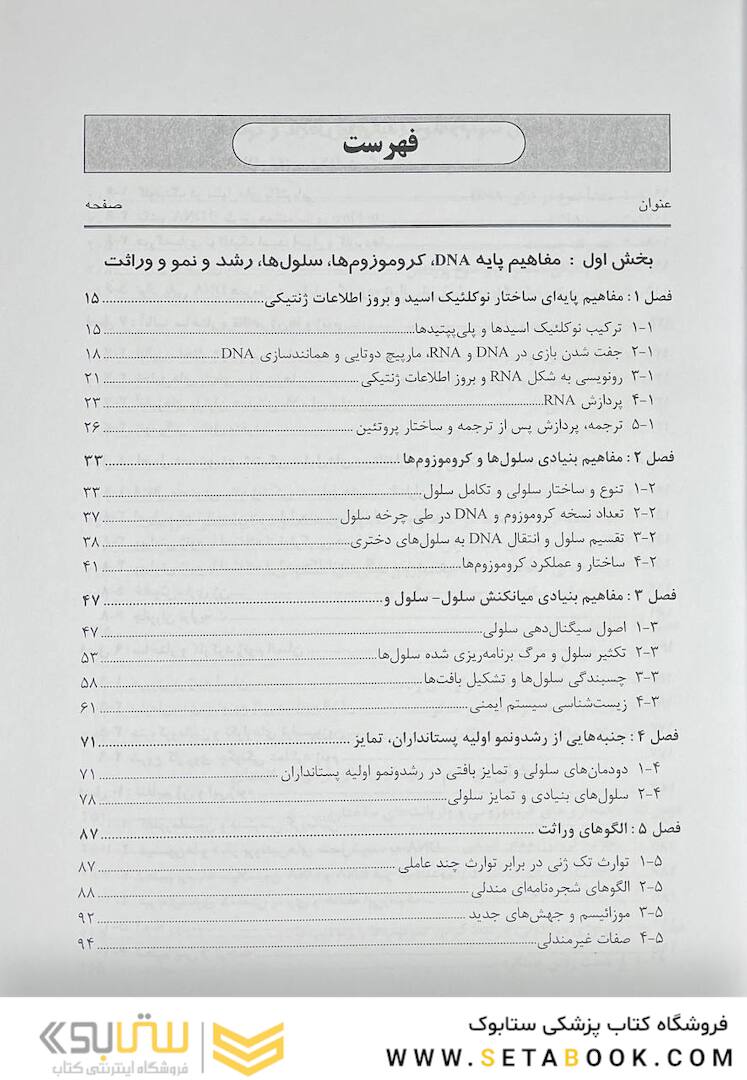 فهرست
عنوان صفحه
بخش اول : مفاهیم پایه DNA، کروموزوم‌ها، سلول‌ها، رشد و نمو و وراثت
فصل ۱: مفاهیم پایه‌ای ساختار نوکلئیک اسید و بروز اطلاعات ژنتیکی ۱۵
۱-۱ ترکیب نوکلئیک اسیدها و پلی‌پپتیدها ۱۵
۲-۱ جفت شدن بازی در DNA و RNA، مارپیچ دوتایی و همانندسازی DNA ۱۸
۳-۱ رونویسی به شکل RNA و بروز اطلاعات ژنتیکی ۲۱
۴-۱ پردازش RNA ۲۳
۵-۱ ترجمه، پردازش پس از ترجمه و ساختار پروتئین ۲۶
فصل ۲: مفاهیم بنیادی سلول‌ها و کروموزوم‌ها ۳۳
۱-۲ تنوع و ساختار سلولی و تکامل سلول ۳۳
۲-۲ تعداد نسخه کروموزوم و DNA در طی چرخه سلول ۳۷
۳-۲ تقسیم سلول و انتقال DNA به سلول‌های دختری ۳۸
۴-۲ ساختار و عملکرد کروموزوم‌ها ۴۱
فصل ۳: مفاهیم بنیادی میانکنش سلول- سلول و ۴۷
۱-۳ اصول سیگنال‌دهی سلولی ۴۷
۲-۳ تکثیر سلول و مرگ برنامه‌ریزی شده سلول‌ها ۵۳
۳-۳ چسبندگی سلول‌ها و تشکیل بافت‌ها ۵۸
۴-۳ زیست‌شناسی سیستم ایمنی ۶۱
فصل ۴: جنبه‌هایی از رشدونمو اولیه پستانداران، تمایز ۷۱
۱-۴ دودمان‌های سلولی و تمایز بافتی در رشدونمو اولیه پستانداران ۷۱
۲-۴ سلول‌های بنیادی و تمایز سلولی ۷۸
فصل ۵: الگوهای وراثت ۸۷
۱-۵ توارث تک ژنی در برابر توارث چند عاملی ۸۷
۲-۵ الگوهای شجره‌نامه‌ای مندلی ۸۸
۳-۵ موزائیسم و جهش‌های جدید ۹۲
۴-۵ صفات غیرمندلی ۹۴
فروشگاه کتاب پزشکی ستابوک
WWW.SETABOOK.COM
ستابوک
فروشگاه اینترنتی کتاب